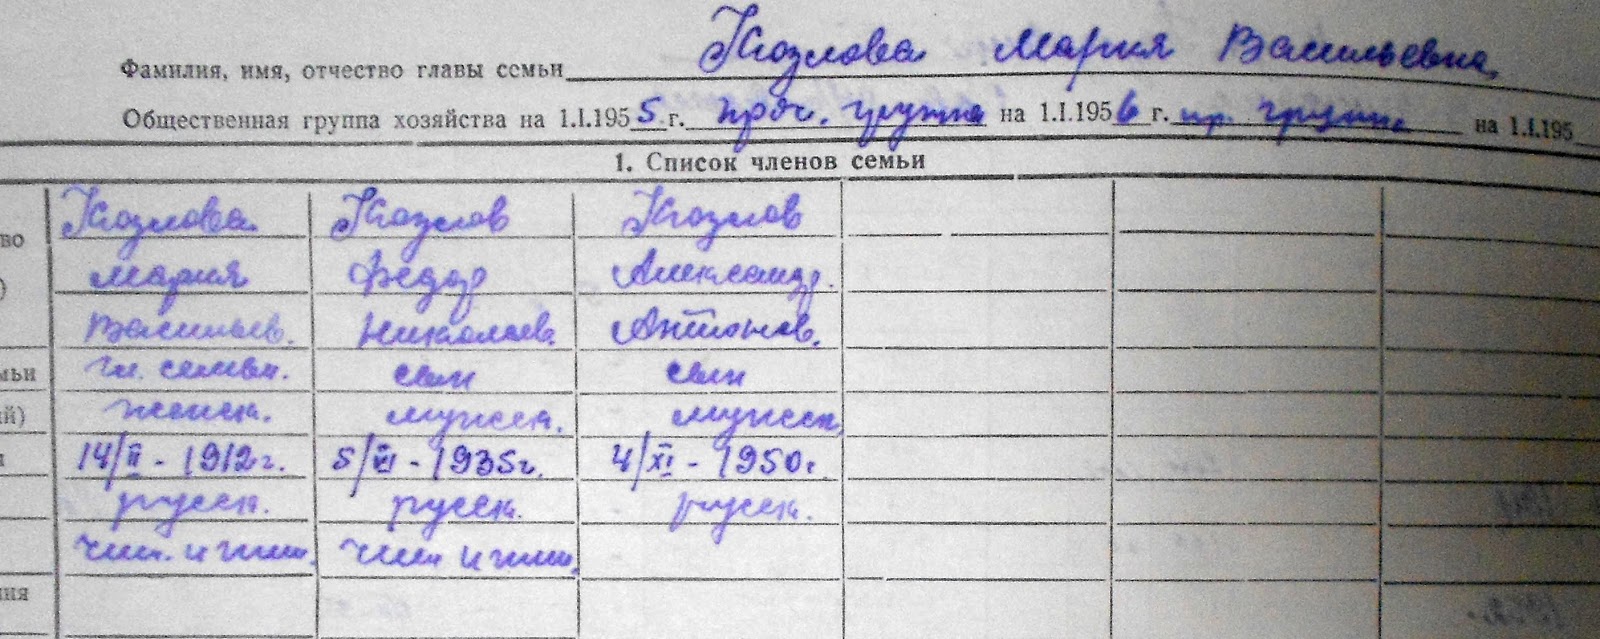 Фамилия, имя, отчество главы семьи Козлова Мария Васильевна
Общественная группа хозяйства на 1.I.1955 г. проч. группа на 1.I.1956 г. пр. группа на 1.I.195
1. Список членов семьи
во Козлова Козлов Козлов
) Мария Федор Александр.
Васильев. Николаев. Антонов.
мьи гл. семьи. сын сын
ий) женск. мужск. мужск.
14/II - 1912 г. 5/VI - 1935 г. 4/XI - 1950 г
русск. русск. русск.
чит. и пиш. чит. и пиш.
ния